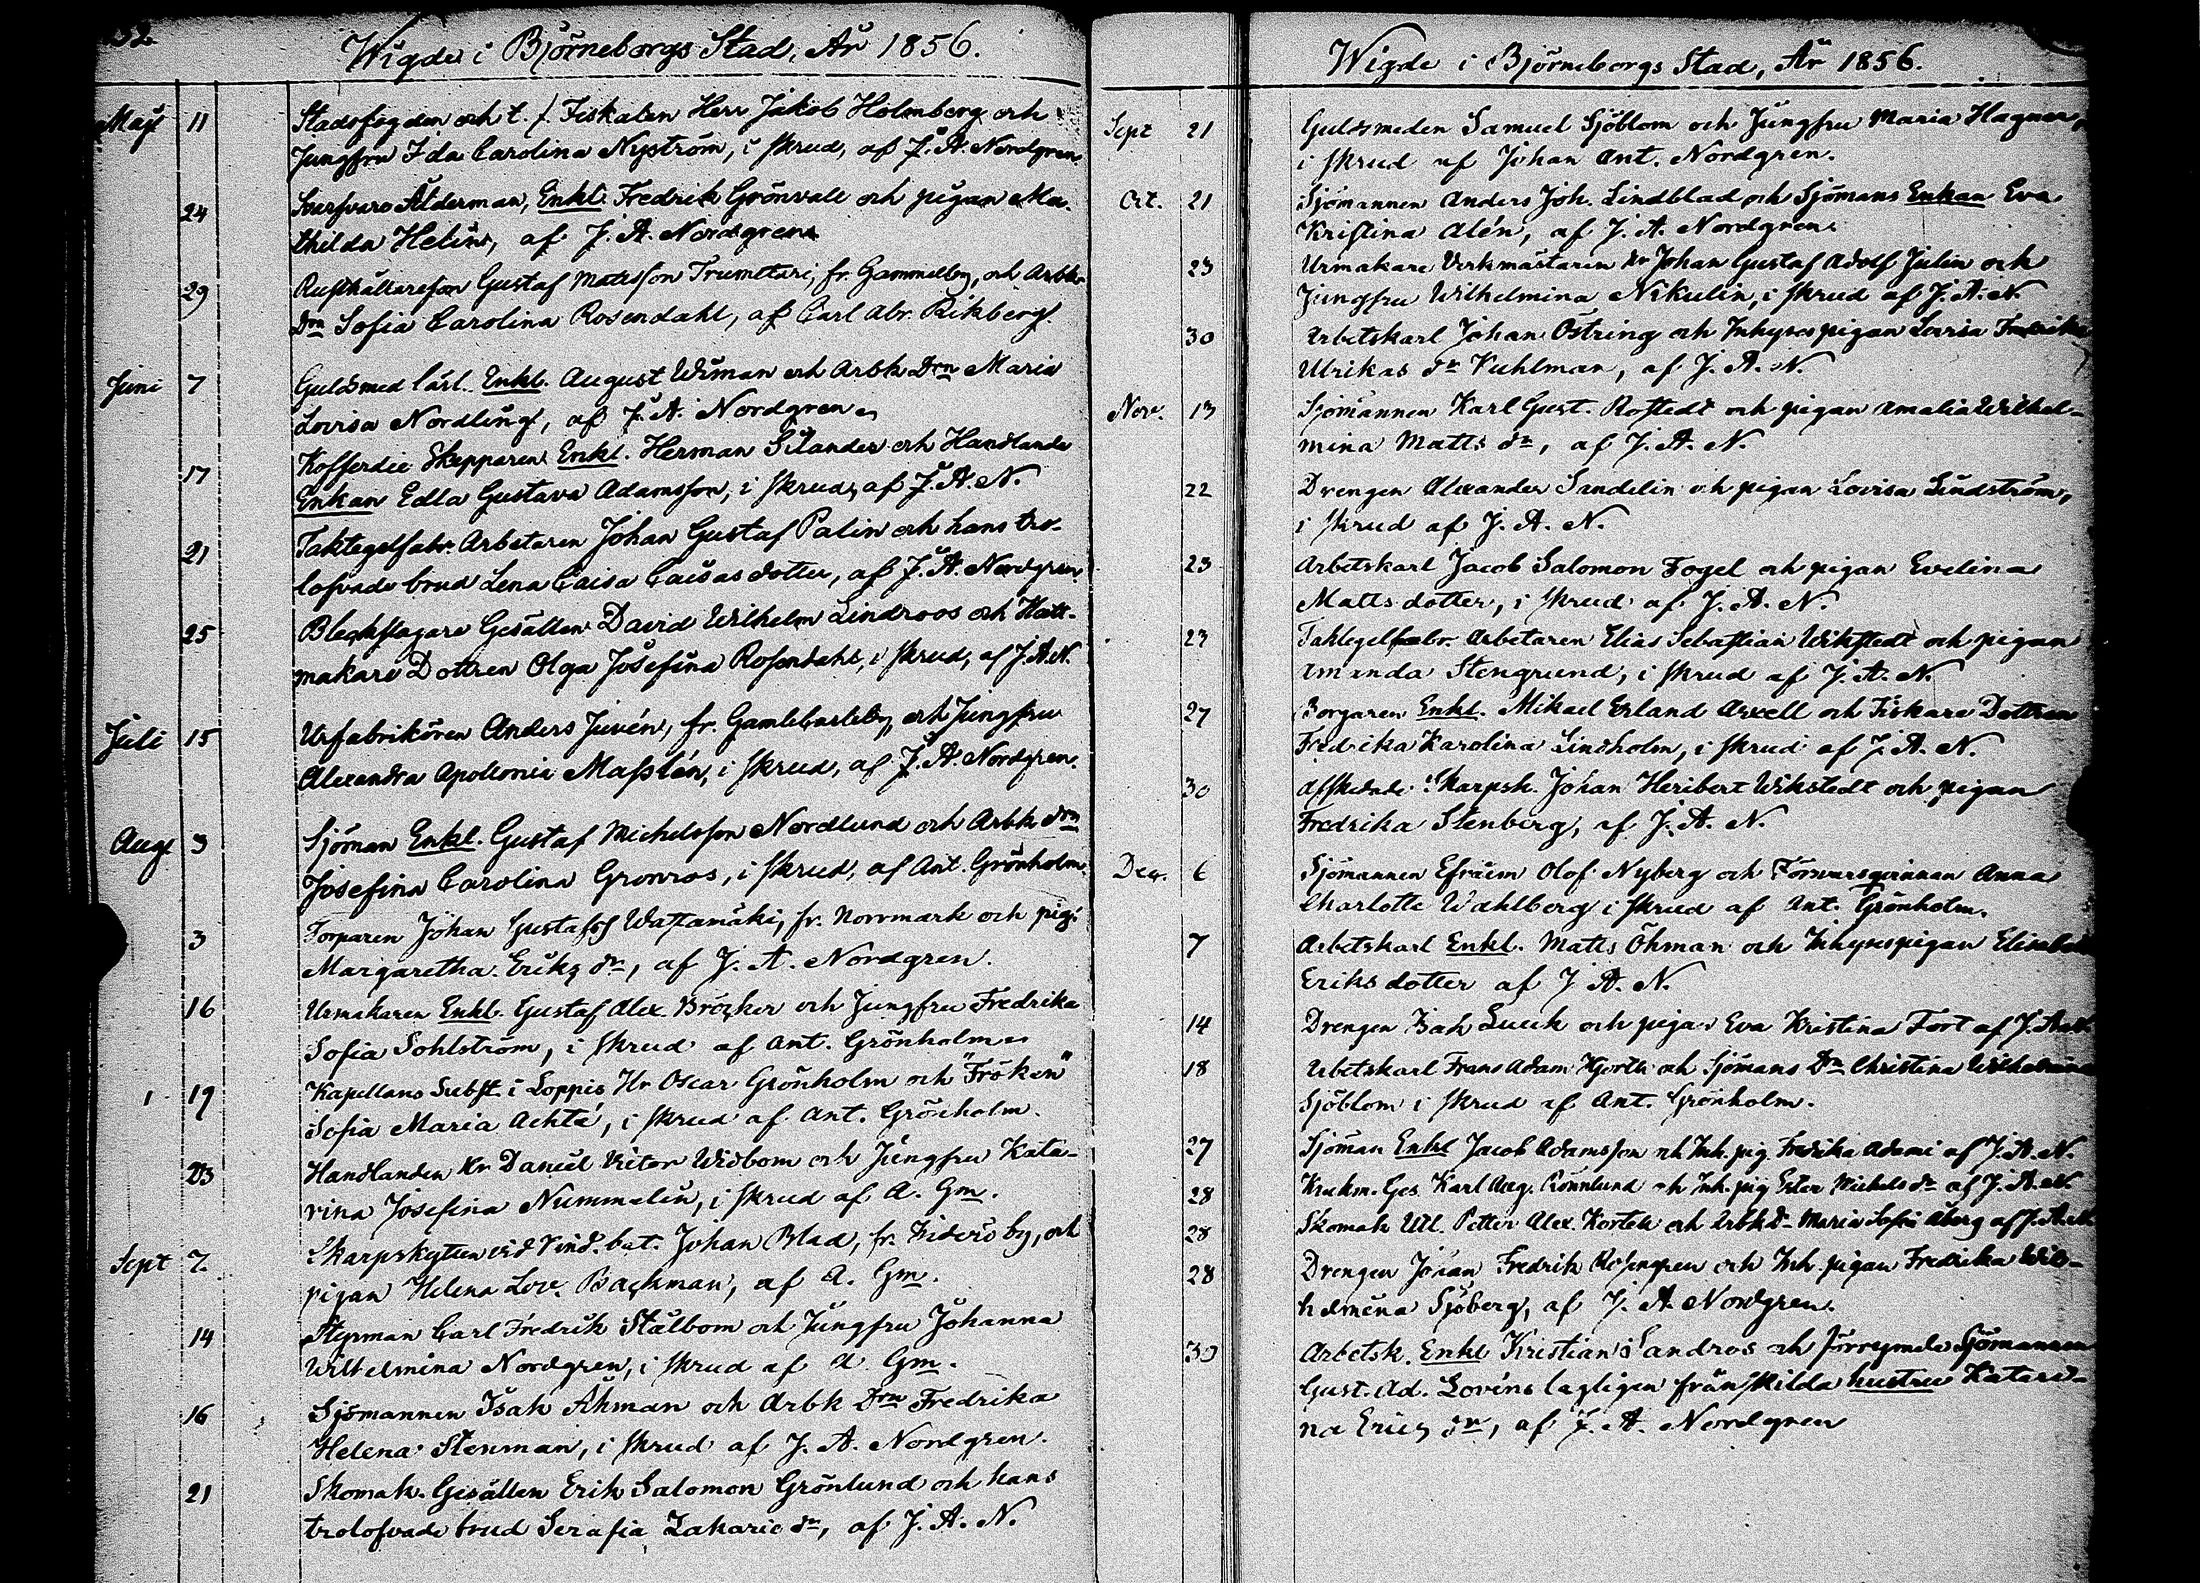 52.
Wigde i Björneborgs Stad, År 1856.
Maji 11 Stadsfogden och t. f. Fiskalen Herr Jakob Holmberg och
Jungfru Ida Carolina Nyström, i skrud, af J. A. Nordgren.
24 Ålderman, Enkl. Fredrik Grönvall och pigan Ma-
thilda Helin, af J. A. Nordgren
29 Rusthållareson Gustaf Mattsson Trumetari, fr. Gammelby, och Arbk.
Drn Sofia Carolina Rosendahl, af Carl Abr. Rikberg.
Juni 7 Guldsmed lärl. Enkl. August Wiman och Arbk Drn Maria
Lovisa Nordling, af J. A. Nordgren
17 Kofferdie Skepparen Enkl. Herman Silander och Handlande
Enkan Edla Gustava Adamsson, i skrud, af J. A. N.
21 Taktegelfabr. Arbetaren Johan Gustaf Palin och hans tro-
lofvade brud Lena Caisa Caisasdotter, af J. A. Nordgren
25 Bleckslagare Gesällen David Wilhelm Lindroos och Hatt-
makare Dottren Olga Josefina Rosendahl, i skrud, af J. A. N.
Juli 15 Urfabrikören Anders Juvén, fr. Gamlekarleby, och Jungfru
Alexandra Apollonia Masslén, i skrud, af J. A. Nordgren.
Aug 3 Sjöman Enkl. Gustaf Michelsson Nordlund och Arbk drn
Josefina Carolina Grönros, i skrud, af Ant. Grönholm.
3 Torparen Johan Gustafss Wattamäki, fr. Norrmark och pig.
Margaretha Eriks dr, af J. A. Nordgren.
16 Urmakaren Enkl. Gustaf Alex. Bröcker och Jungfru Fredrika
Sofia Sohlström, i skrud af Ant. Grönholm
19 Kapellans Subst. i Loppis Hr Oscar Grönholm och "Fröken"
Sofia Maria Achté, i skrud af Ant. Grönholm.
23 Handlanden Hr Daniel Victor Widbom och Jungfru Kata-
rina Josefina Nummelin, i skrud af A. Gm.
Sept 7 Skarpskytten vid Vind. bat. Johan Blad, fr. Fridersby, och
pigan Helena Lov. Bachman, af A. Gm.
14 Styrman Carl Fredrik Stålbom och Jungfru Johanna
Wilhelmina Nordgren, i skrud af A. Gm.
16 Sjömannen Isak Åhman och Arbk Drn Fredrika
Helena Stenman, i skrud af J. A. Nordgren.
21 Skomak. Gesällen Erik Salomon Grönlund och hans
trolofvade brud Serafia Zakarie dr, af J. A. N.
Wigde i Björneborgs Stad, År 1856.
Sept 21 Guldsmeden Samuel Sjöblom och Jungfru Maria Hagner,
i skrud af Johan Ant. Nordgren.
Oct. 21 Sjömannen Anders Joh. Lindblad och Sjömans Enkan Eva
Kristina Alén, af J. A. Nordgren.
23 Urmakare Verkmästaren Hr Johan Gustaf Adolf Julin och
Jungfru Wilhelmina Nikulin, i skrud af J. A. N.
30 Arbetskarl Johan Östring och Inhysespigan Lovisa Fredrika
Ulrikas dr Kuhlman, af J. A. N.
Nov. 13 Sjömannen Karl Gust. Rostedt och pigan Amalia Wilhel-
mina Matts dr, af J. A. N.
22 Drengen Alexander Sandelin och pigan Lovisa Lindström,
i skrud af J. A. N.
23 Arbetskarl Jacob Salomon Fogel och pigan Evelina
Mattsdotter, i skrud af J. A. N.
23 Taktegelfabr. Arbetaren Elias Sebastian Wikstedt och pigan
Amanda Stengrund, i skrud af J. A. N.
27 Borgaren Enkl. Mikael Erland Axell och Fiskare Dottren
Fredrika Karolina Lindholm, i skrud af J. A. N.
30 Afskedade Skarpsk. Johan Heribert Wikstedt och pigan
Fredrika Stenberg, af J. A. N.
Dec. 6 Sjömannen Efraim Olof Nyberg och Anna
Charlotte Wahlberg i skrud af Ant. Grönholm.
7 Arbetskarl Enkl. Matts Öhman och Inhysespigan
Eriksdotter af J. A. N.
14 Drengen Isak Luuk och pigan Eva Kristina Fort af J. A. N.
18 Arbetskarl Frans Adam Hjorth och Sjömans Drn Christina Wilhelmina
Sjöblom i skrud af Ant. Grönholm.
27 Sjöman Enkl Jacob Adamsson och Inh. pig. Fredrika Adami af J. A. N.
28 Krukm. Ges. Karl Aug. Rönnlund och Inh. pig Ester Michels dr af J. A. N.
28 Skomak Petter Alex. Kortek och Arbk dr Maria Sofia Åberg af J. A. N.
28 Drengen Johan Fredrik Rosengren och Inh. pigan Fredrika Wil-
helmina Sjöberg, af J. A. Nordgren.
30 Arbetsk. Enkl Kristian Sandros och förrymde Sjömannen
Gust. Ad. Lovéns lagligen frånskilda hustru Katari-
na Erics dr, af J. A. Nordgren